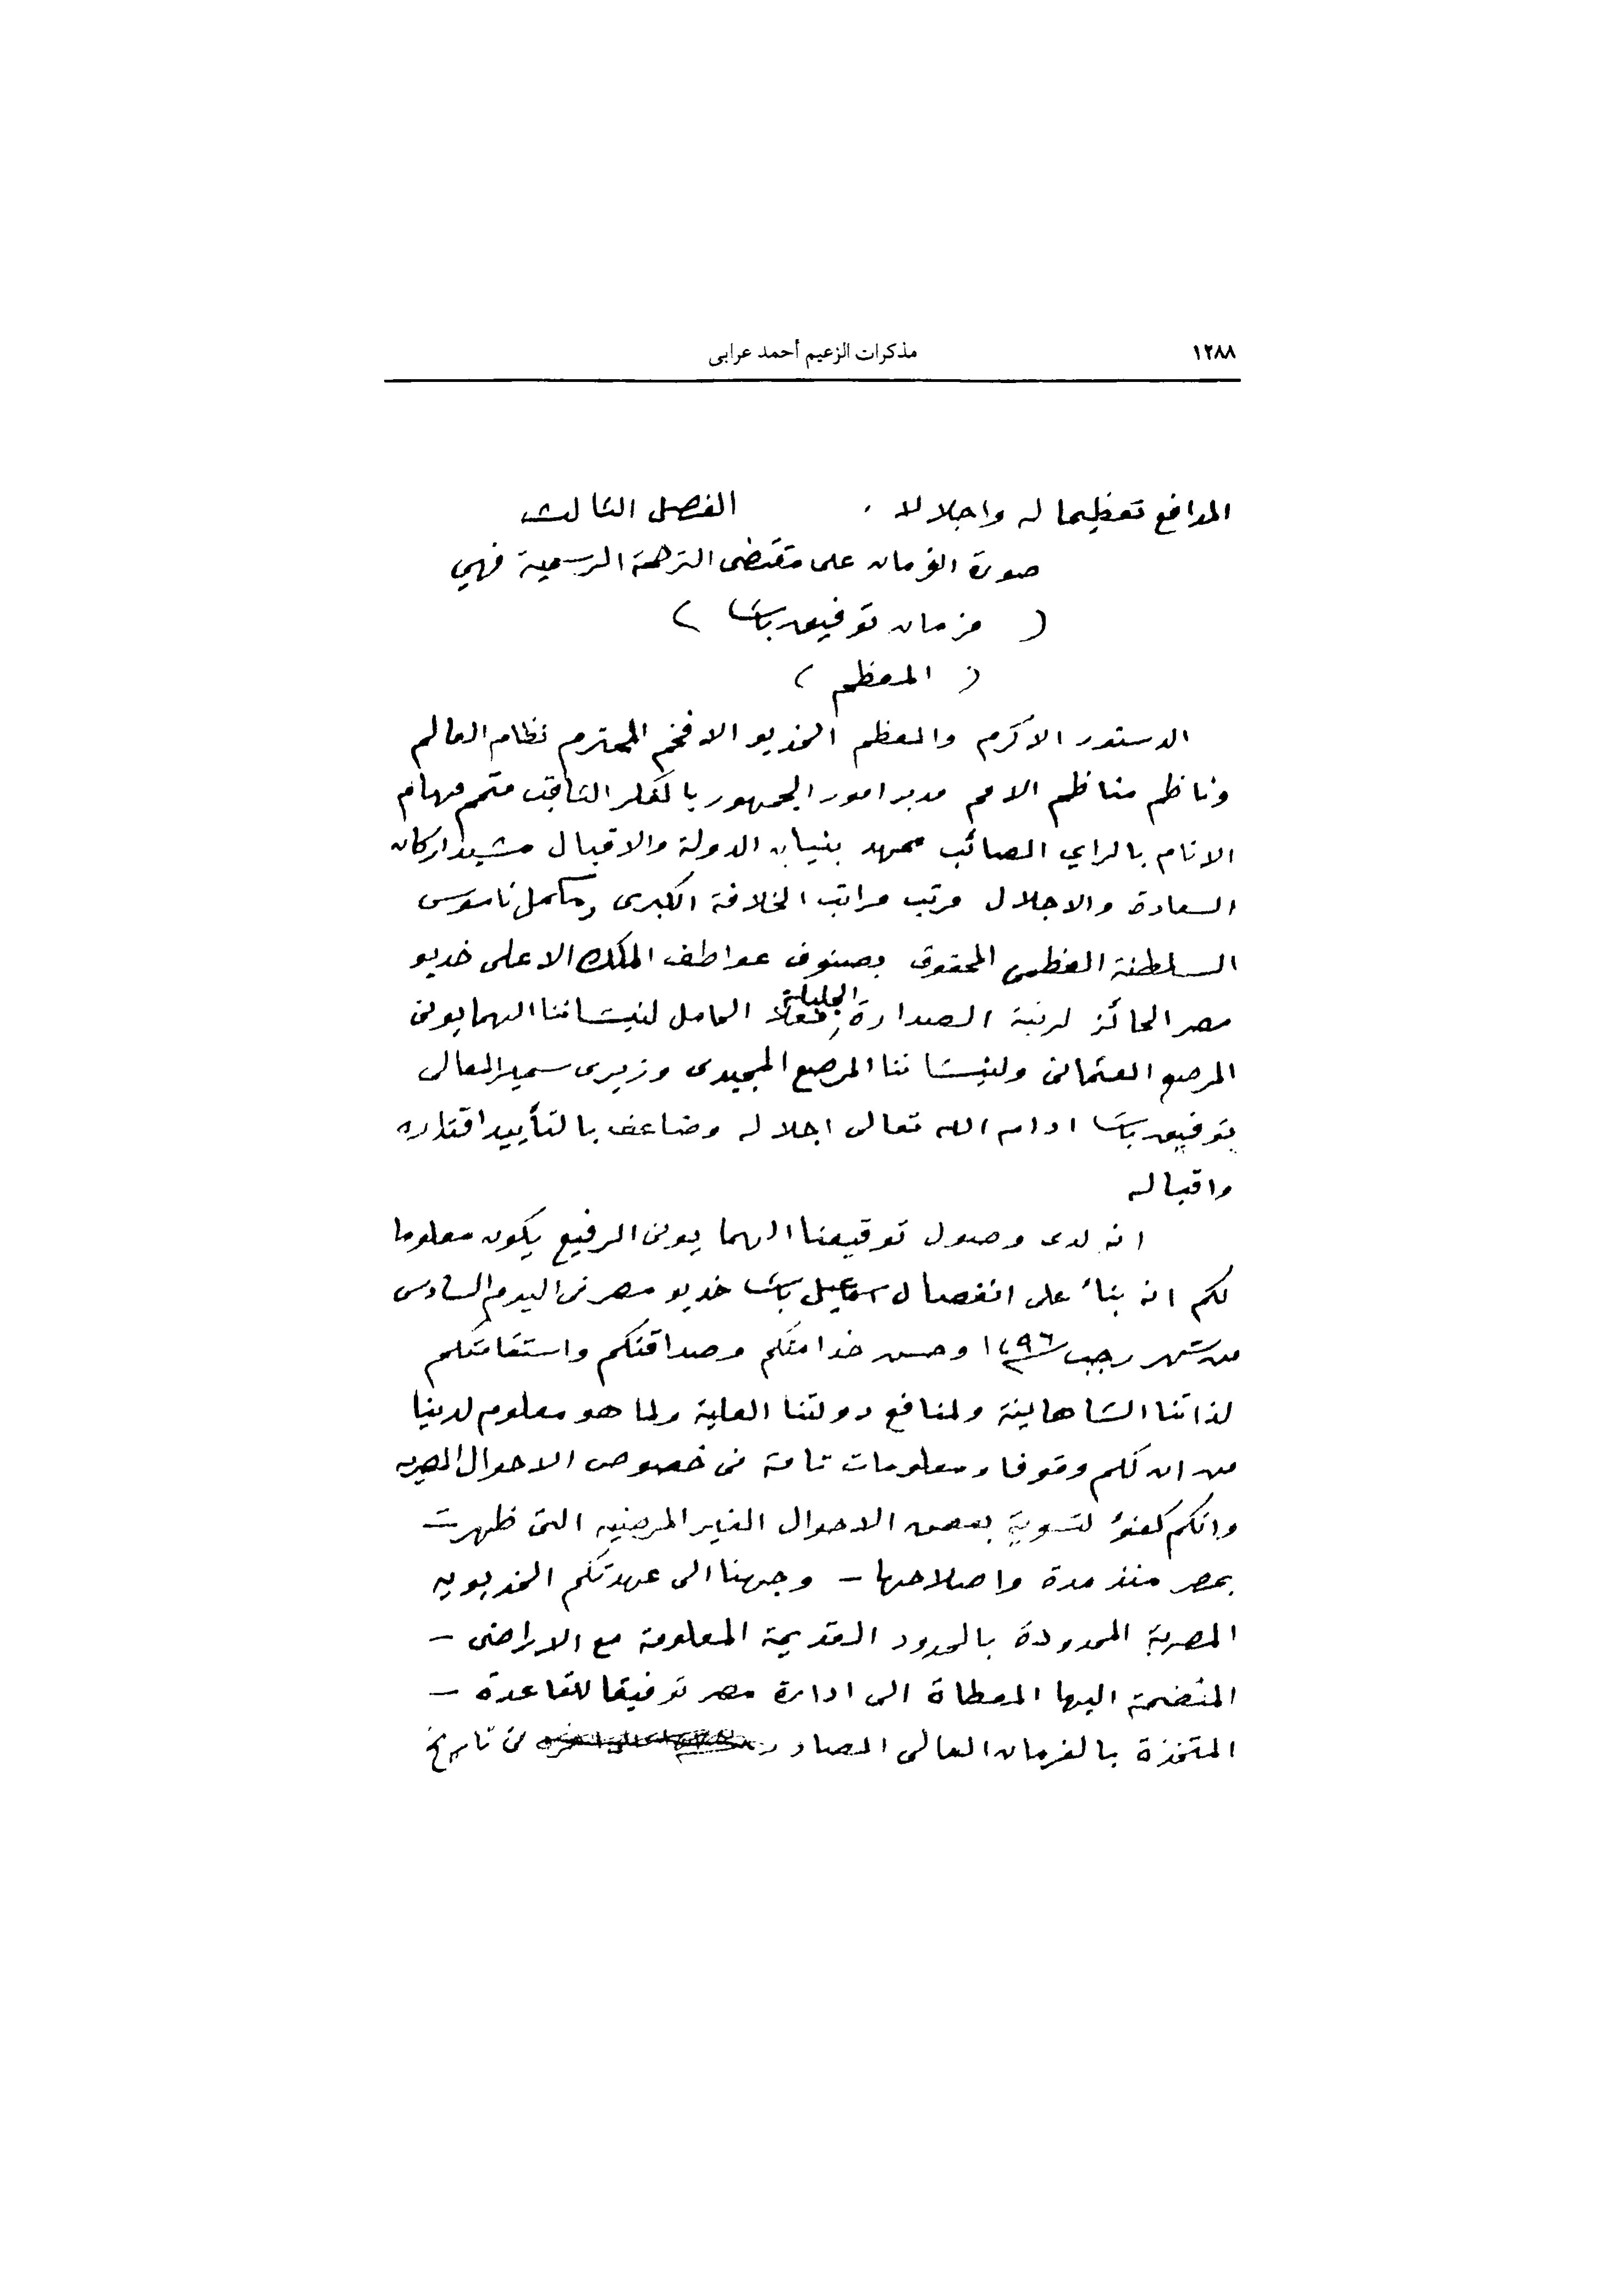 ١٢٨٨ مذكرات الزعيم أحمد عرابى
المدافع تعظيما له واجلالا . الفصل الثالث
صورة الفرمان على مقتضى الترجمة الرسمية فهي
( فرمان توفيق باشا )
( المعظم )
الدستور الأكرم والمعظم الخديو الافخم المحترم نظام العالم
وناظم مناظم الامم مدبر امور الجمهور بالفكر الثاقب متمم مهام
الانام بالراي الصائب ممهد بنيان الدولة والاقبال مشيد اركان
السعادة والاجلال مرتب مراتب الخلافة الكبرى ومكمل ناموس
السلطنة العظمى المحفوف بصنوف عواطف الملك الاعلى خديو
مصر الحائز لرتبة الصدارة الجليلة فعلا الحامل لنيشاننا الهمايونى
المرصع العثمانى ولنيشاننا المرصع المجيدى وزيرى سمير المعالى
توفيق باشا ادام الله تعالى اجلاله وضاعف بالتأييد اقتداره
واقباله
انه لدى وصول توقيعنا الهمايونى الرفيع يكون معلوما
لكم انه بناءً على انفصال اسماعيل باشا خديو مصر فى اليوم السادس
من شهر رجب سنة ١٢٩٦ وحسن خدامتكم وصداقتكم واستقامتكم
لذاتنا الشاهانية ولمنافع دولتنا العلية ولما هو معلوم لدينا
من ان لكم وقوفا ومعلومات تامة فى خصوص الاحوال المصريه
وانكم كفؤ لتسوية بعض الاحوال الغير المرضيه التى ظهرت
بمصر منذ مدة واصلاحها – وجهنا الى عهدتكم الخديويه
المصرية المحدودة بالحدود القديمة المعلومة مع الاراضى –
المنضمة اليها المعطاة الى ادارة مصر توفيقا للقاعدة –
المتخذة بالفرمان العالى الصادر فى تاريخ